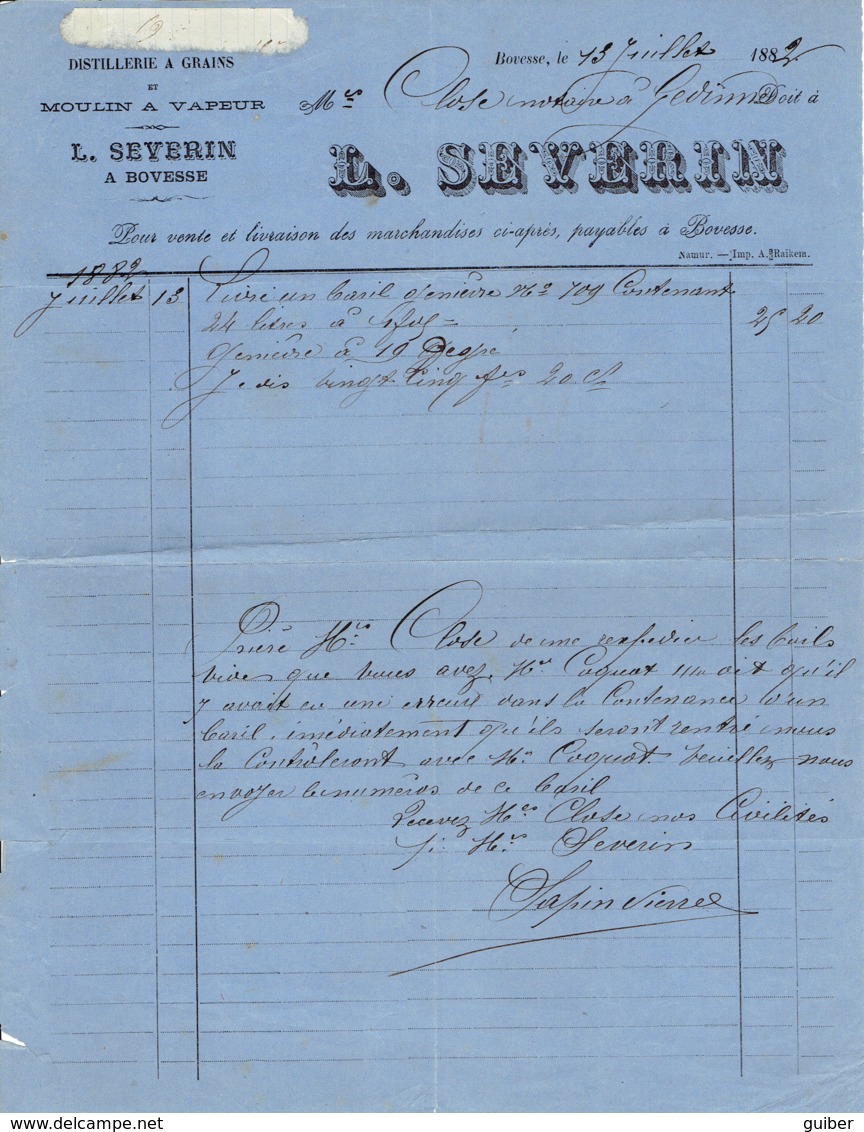 DISTILLERIE A GRAINS
ET
MOULIN A VAPEUR
L. SEVERIN
A BOVESSE
Bovesse, le 13 Juillet 1882
Mrs Close notaire à Gedinne Doit à
L. SEVERIN
Pour vente et livraison des marchandises ci-après, payables à Bovesse.
Namur. — Imp. A. Raikem.
1882
Juillet 13 Livré un baril genièvre No 709 Contenant
24 litres à 25 20
genièvre à 19 Degré
Je dis Vingt Cinq frs 20 cs
Prière Mrs Close de me rexpedier les barils
vides que vous avez. Mr Coquat dit qu'il
y avait eu une erreur dans la Contenance d'un
baril. imédiatement qu'ils seront rentré nous
la Contrôleront avec Mr Coquat. Veuillez nous
envoyer le numéros de ce baril
Recevez Mrs Close nos Civilités
Mr Severin
Lapin
guiber